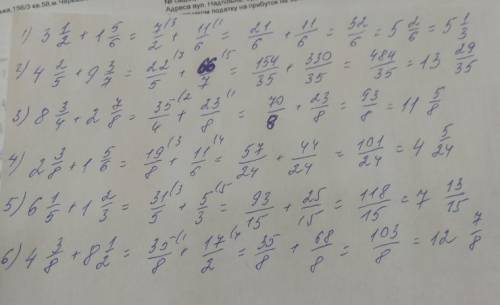 1) 3 1/2 + 1 5/6 = 7/2 (3 + 11/6 (1 = 21/6 + 11/6 = 32/6 = 5 2/6 = 5 1/3
2) 4 2/5 + 9 3/7 = 22/5 (7 + 66/7 (5 = 154/35 + 330/35 = 484/35 = 13 29/35
3) 8 3/4 + 2 7/8 = 35/4 (2 + 23/8 (1 = 70/8 + 23/8 = 93/8 = 11 5/8
4) 2 3/8 + 1 5/6 = 19/8 (3 + 11/6 (4 = 57/24 + 44/24 = 101/24 = 4 5/24
5) 6 1/5 + 1 2/3 = 31/5 (3 + 5/3 (5 = 93/15 + 25/15 = 118/15 = 7 13/15
6) 4 3/8 + 8 1/2 = 35/8 (1 + 17/2 (4 = 35/8 + 68/8 = 103/8 = 12 7/8